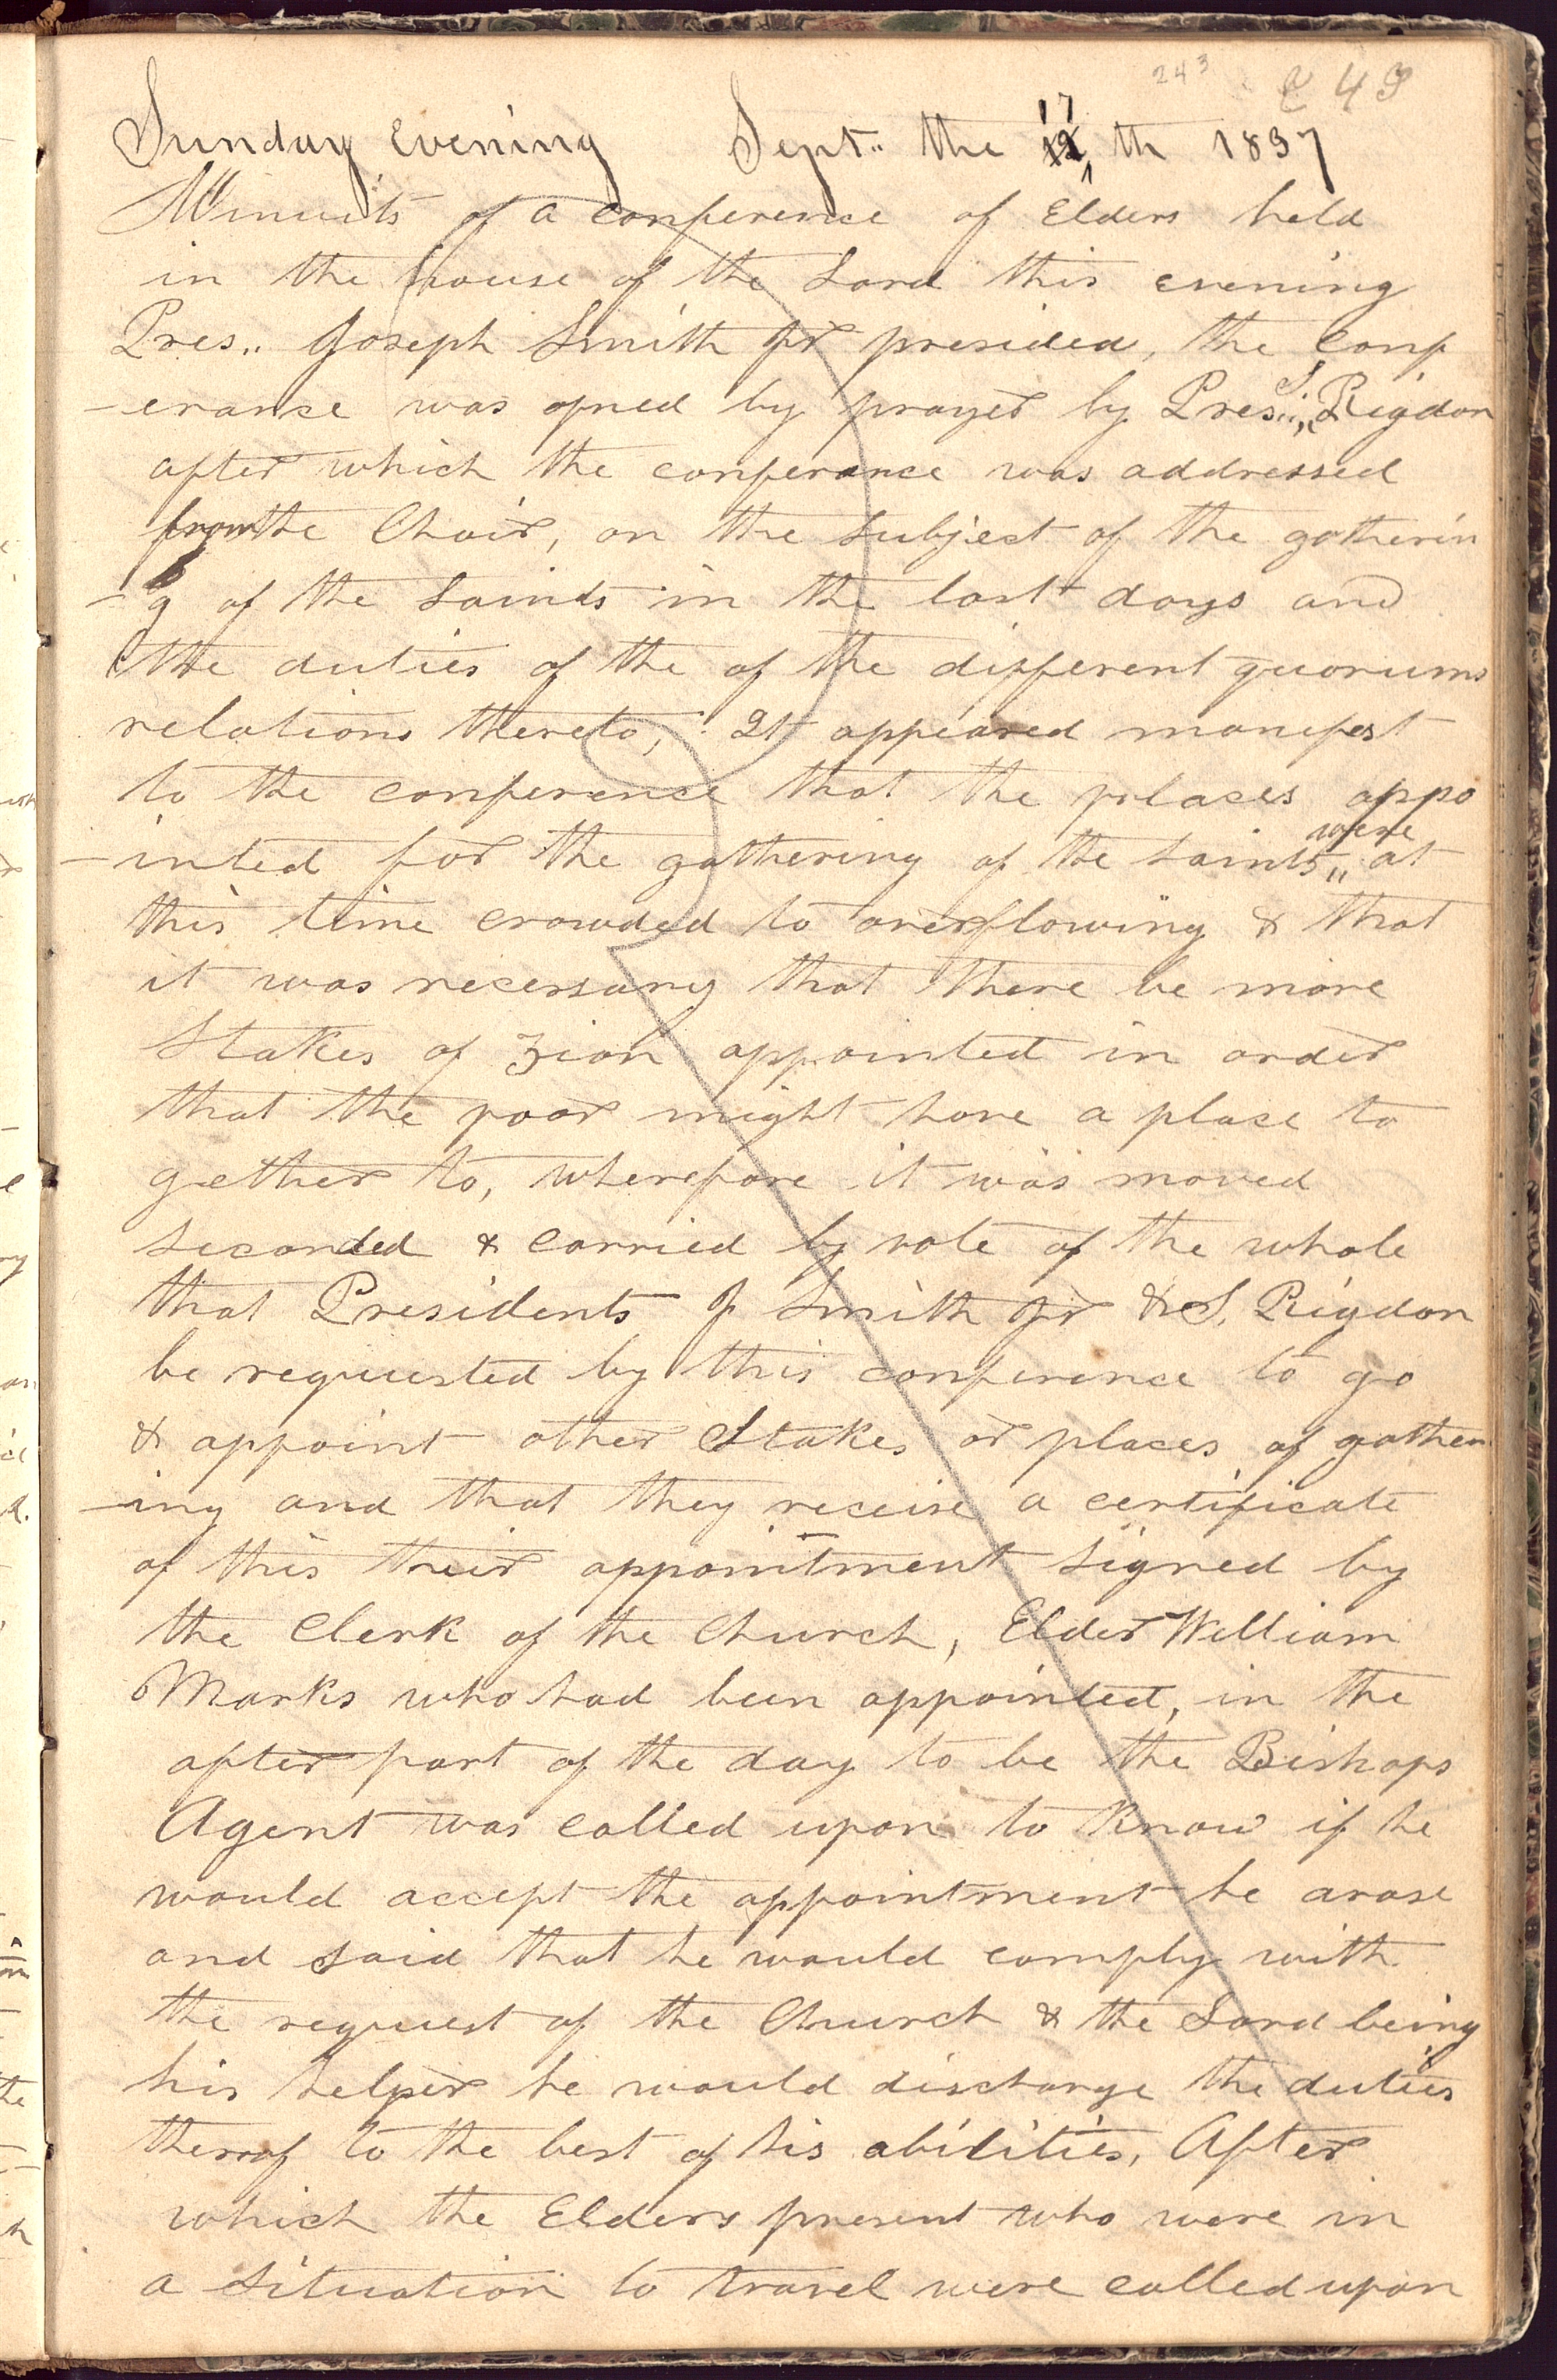 243 243
Sunday evening Sept.. the 17 th 1837
Minuits of a conference of Elders held
in the house of the Lord this evening
Pres.. Joseph Smith Jr presided, the conf
-erance was opned by prayer by Pres.. S, Rigdon
after which the conferance was addressed
from the Chair, on the subject of the gatherin
-g of the saints in the last days and
the duties of the of the different quorums
relations thereto, It appeared manifest
to the conference that the places appo
-inted for the gathering of the saints were at
this time crowded to overflowing & that
it was necessary that there be more
Stakes of Zion appointed in order
that the poor might have a place to
gether to, wherefore it was moved
seconded & carried by vote of the whole
that Presidents J Smith Jr & S, Rigdon
be requested by this conference to go
& appoint other Stakes or places of gather
-ing and that they receive a certificate
of this their appointment signed by
the Clerk of the Church, Elder William
Marks who had been appointed, in the
after part of the day to be the Bishops
Agent was called upon to know if he
would accept the appointment he arose
and said that he would comply with
the request of the Church & the Lord being
his helper he would discharge the duties
therof to the best of his abilities, After
which the Elders present who were in
a situation to travel were called upon